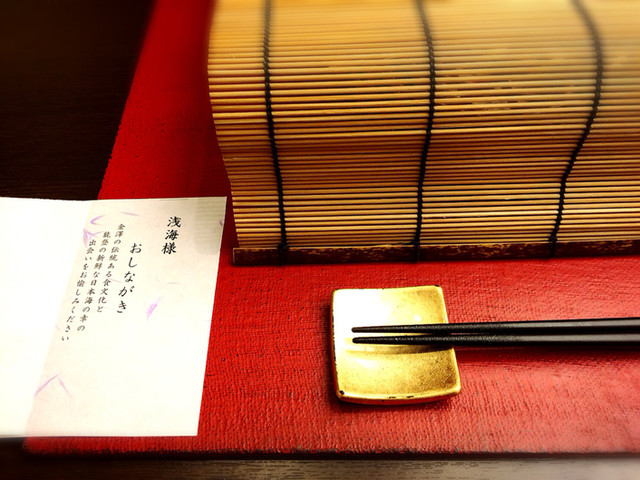 浅海様
おしながき
金澤の伝統ある食文化と
能登の新鮮な日本海の幸の
出会いをお愉しみください